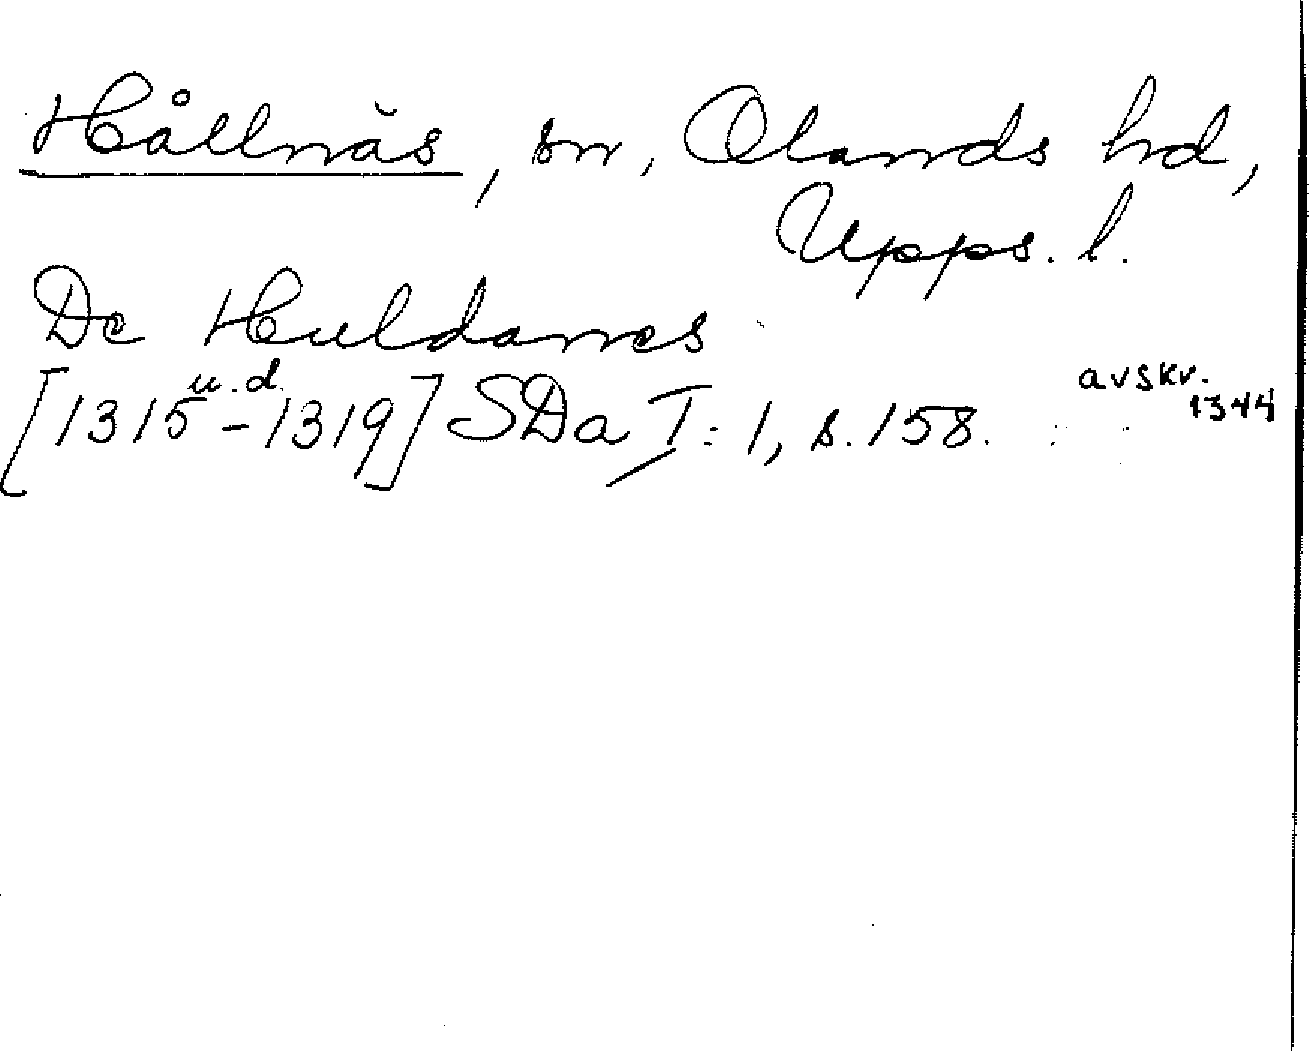 Hållnäs, sn, Olands hd,
Upps. l.
De Huldanes
[1315 u.d. - 1319] SDa I:1, s. 158. avskr. 1344